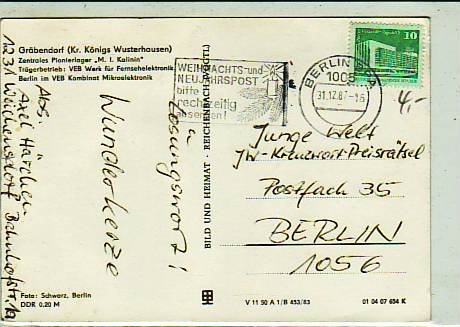 Gräbendorf (Kr. Königs Wusterhausen)
Zentrales Pionierlager „M. I. Kalinin"
Trägerbetrieb: VEB Werk für Fernsehelektronik
Berlin im VEB Kombinat Mikroelektronik
Abs.
Axel
1231
Bahnhofstr.
Lösungswort:
Wunderkerze
WEIHNACHTS-und
NEUJAHRSPOST
bitte
rechtzeitig
absenden!
BERLIN
1005
31.12.87-16
10
4,-
Junge Welt
JW-Kreuzwort-Preisrätsel
Postfach 35
BERLIN
1056
BILD UND HEIMAT · REICHENBACH (VOGTL)
Foto: Schwarz, Berlin
DDR 0,20 M
V 11 50 A 1/B 453/83
01 04 07 654 K